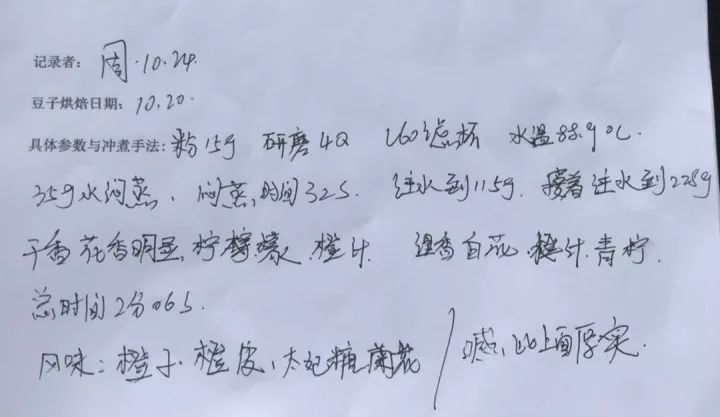 记录者: 周.10.24.
豆子烘焙日期: 10.20.
具体参数与冲煮手法: 粉15g 研磨4Q V60滤杯 水温88.9℃.
35g水闷蒸, 闷蒸时间32S. 注水到115g. 接着注水到228g
干香 花香明显, 柠檬 橙汁 湿香 白花. 橙汁. 青柠.
总时间2分06S.
风味: 橙子、橙皮、太妃糖 菊花 / 感, 比上面厚实.